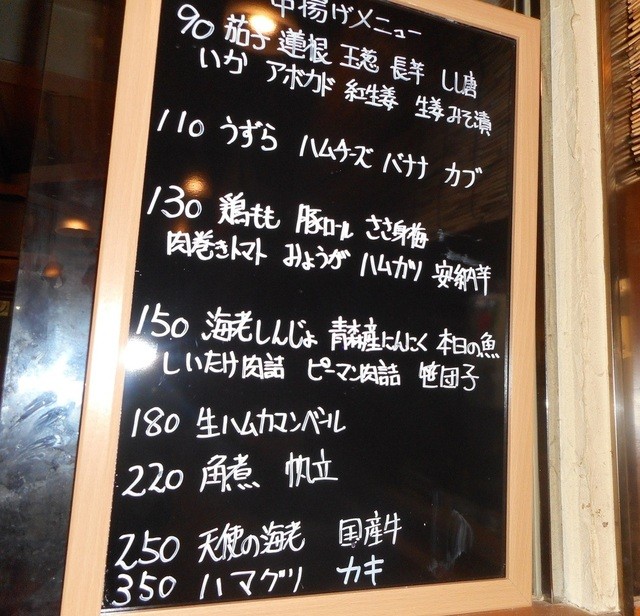 串揚げメニュー
90 茄子 蓮根 玉葱 長芋 しし唐
いか アボカド 紅生姜 生姜みそ漬
110 うずら ハムチーズ バナナ カブ
130 鶏もも 豚ロール ささ身梅
肉巻きトマト みょうが ハムカツ 安納芋
150 海老しんじょ 青森産にんにく 本日の魚
しいたけ肉詰 ピーマン肉詰 笹団子
180 生ハムカマンベール
220 角煮 帆立
250 天使の海老 国産牛
350 ハマグリ カキ